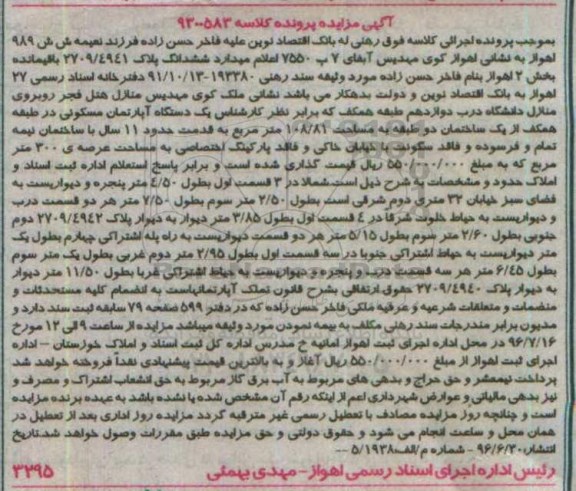 آگهی مزایده پرونده کلاسه ۹۳۰۰۵۸۳
بموجب پرونده اجرائی کلاسه فوق رهنی له بانک اقتصاد نوین علیه فاخر حسن زاده فرزند نعیمه ش ش ۹۸۹
اهواز به نشانی اهواز کوی مهدیس آبفای ۷ پ ۷۵۵۰ اعلام میدارد ششدانگ پلاک ۲۷۰۹/۴۹۴۱ باقیمانده
بخش ۲ اهواز بنام فاخر حسن زاده مورد وثیقه سند رهنی ۱۹۳۳۸۰-۹۱/۱۰/۱۳ دفترخانه اسناد رسمی ۲۷
اهواز به بانک اقتصاد نوین و دولت بدهکار می باشد نشانی ملک کوی مهدیس منازل هتل فجر روبروی
منازل دانشگاه درب دوازدهم طبقه همکف که برابر نظر کارشناس یک دستگاه آپارتمان مسکونی در طبقه
همکف از یک ساختمان دو طبقه به مساحت ۱۰۸/۸۱ متر مربع به قدمت حدود ۱۱ سال با ساختمان نیمه
تمام و فرسوده و فاقد سکونت با خیابان خاکی و فاقد پارکینگ اختصاصی به مساحت عرصه ی ۳۰۰ متر
مربع که به مبلغ ۵۵۰/۰۰۰/۰۰۰ ریال قیمت گذاری شده است و برابر پاسخ استعلام اداره ثبت اسناد و
املاک حدود و مشخصات به شرح ذیل است شمالا در ۳ قسمت اول بطول ۴/۵۰ متر پنجره و دیواریست به
فضای سبز خیابان ۳۲ متری دوم شرقی است بطول ۲/۵۰ متر سوم بطول ۷/۵۰ متر هر دو قسمت درب
و دیواریست به حیاط خلوت شرقا در ۴ قسمت اول بطول ۳/۸۵ متر دیوار به دیوار پلاک ۲۷۰۹/۴۹۴۲ دوم
جنوبی بطول ۲/۶۰ متر سوم بطول ۵/۱۵ متر هر دو قسمت دیواریست به راه پله اشتراکی چهارم بطول یک
متر دیواریست به حیاط اشتراکی جنوبا در سه قسمت اول بطول ۲/۹۵ متر دوم غربی بطول یک متر سوم
بطول ۶/۴۵ متر هر سه قسمت درب و پنجره و دیواریست به حیاط اشتراکی غربا بطول ۱۱/۵۰ متر دیوار
به دیوار پلاک ۲۷۰۹/۴۹۴۰ حقوق ارتفاقی بشرح قانون تملک آپارتمانهاست به انضمام کلیه مستحدثات و
منضمات و متعلقات شرعیه و عرفیه ملکی فاخر حسن زاده که در دفتر ۵۹۹ صفحه ۷۹ سابقه ثبت سند دارد و
مدیون برابر مندرجات سند رهنی مکلف به بیمه نمودن مورد وثیقه میباشد مزایده از ساعت ۹ الی ۱۲ مورخ
۹۶/۷/۱۶ در محل اداره اجرای ثبت اهواز امانیه خ مدرس اداره کل ثبت اسناد و املاک خوزستان – اداره
اجرای ثبت اهواز از مبلغ ۵۵۰/۰۰۰/۰۰۰ ریال آغاز و به بالاترین قیمت پیشنهادی نقداً فروخته خواهد شد
پرداخت نیمعشر و حق حراج و بدهی های مربوط به آب برق گاز مربوط به حق انشعاب اشتراک و مصرف و
نیز بدهی مالیاتی و عوارض شهرداری اعم از اینکه رقم آن مشخص شده یا نشده باشد به عهده برنده مزایده
است و چنانچه روز مزایده مصادف با تعطیل رسمی غیر مترقبه گردد مزایده روز اداری بعد از تعطیل در
همان محل و ساعت انجام می شود و حقوق دولتی و حق مزایده طبق مقررات وصول خواهد شد.تاریخ
انتشار:۹۶/۶/۲۰ - شماره م/الف:۵/۱۹۳۸--
رئیس اداره اجرای اسناد رسمی اهواز - مهدی بهمئی ۳۲۹۵